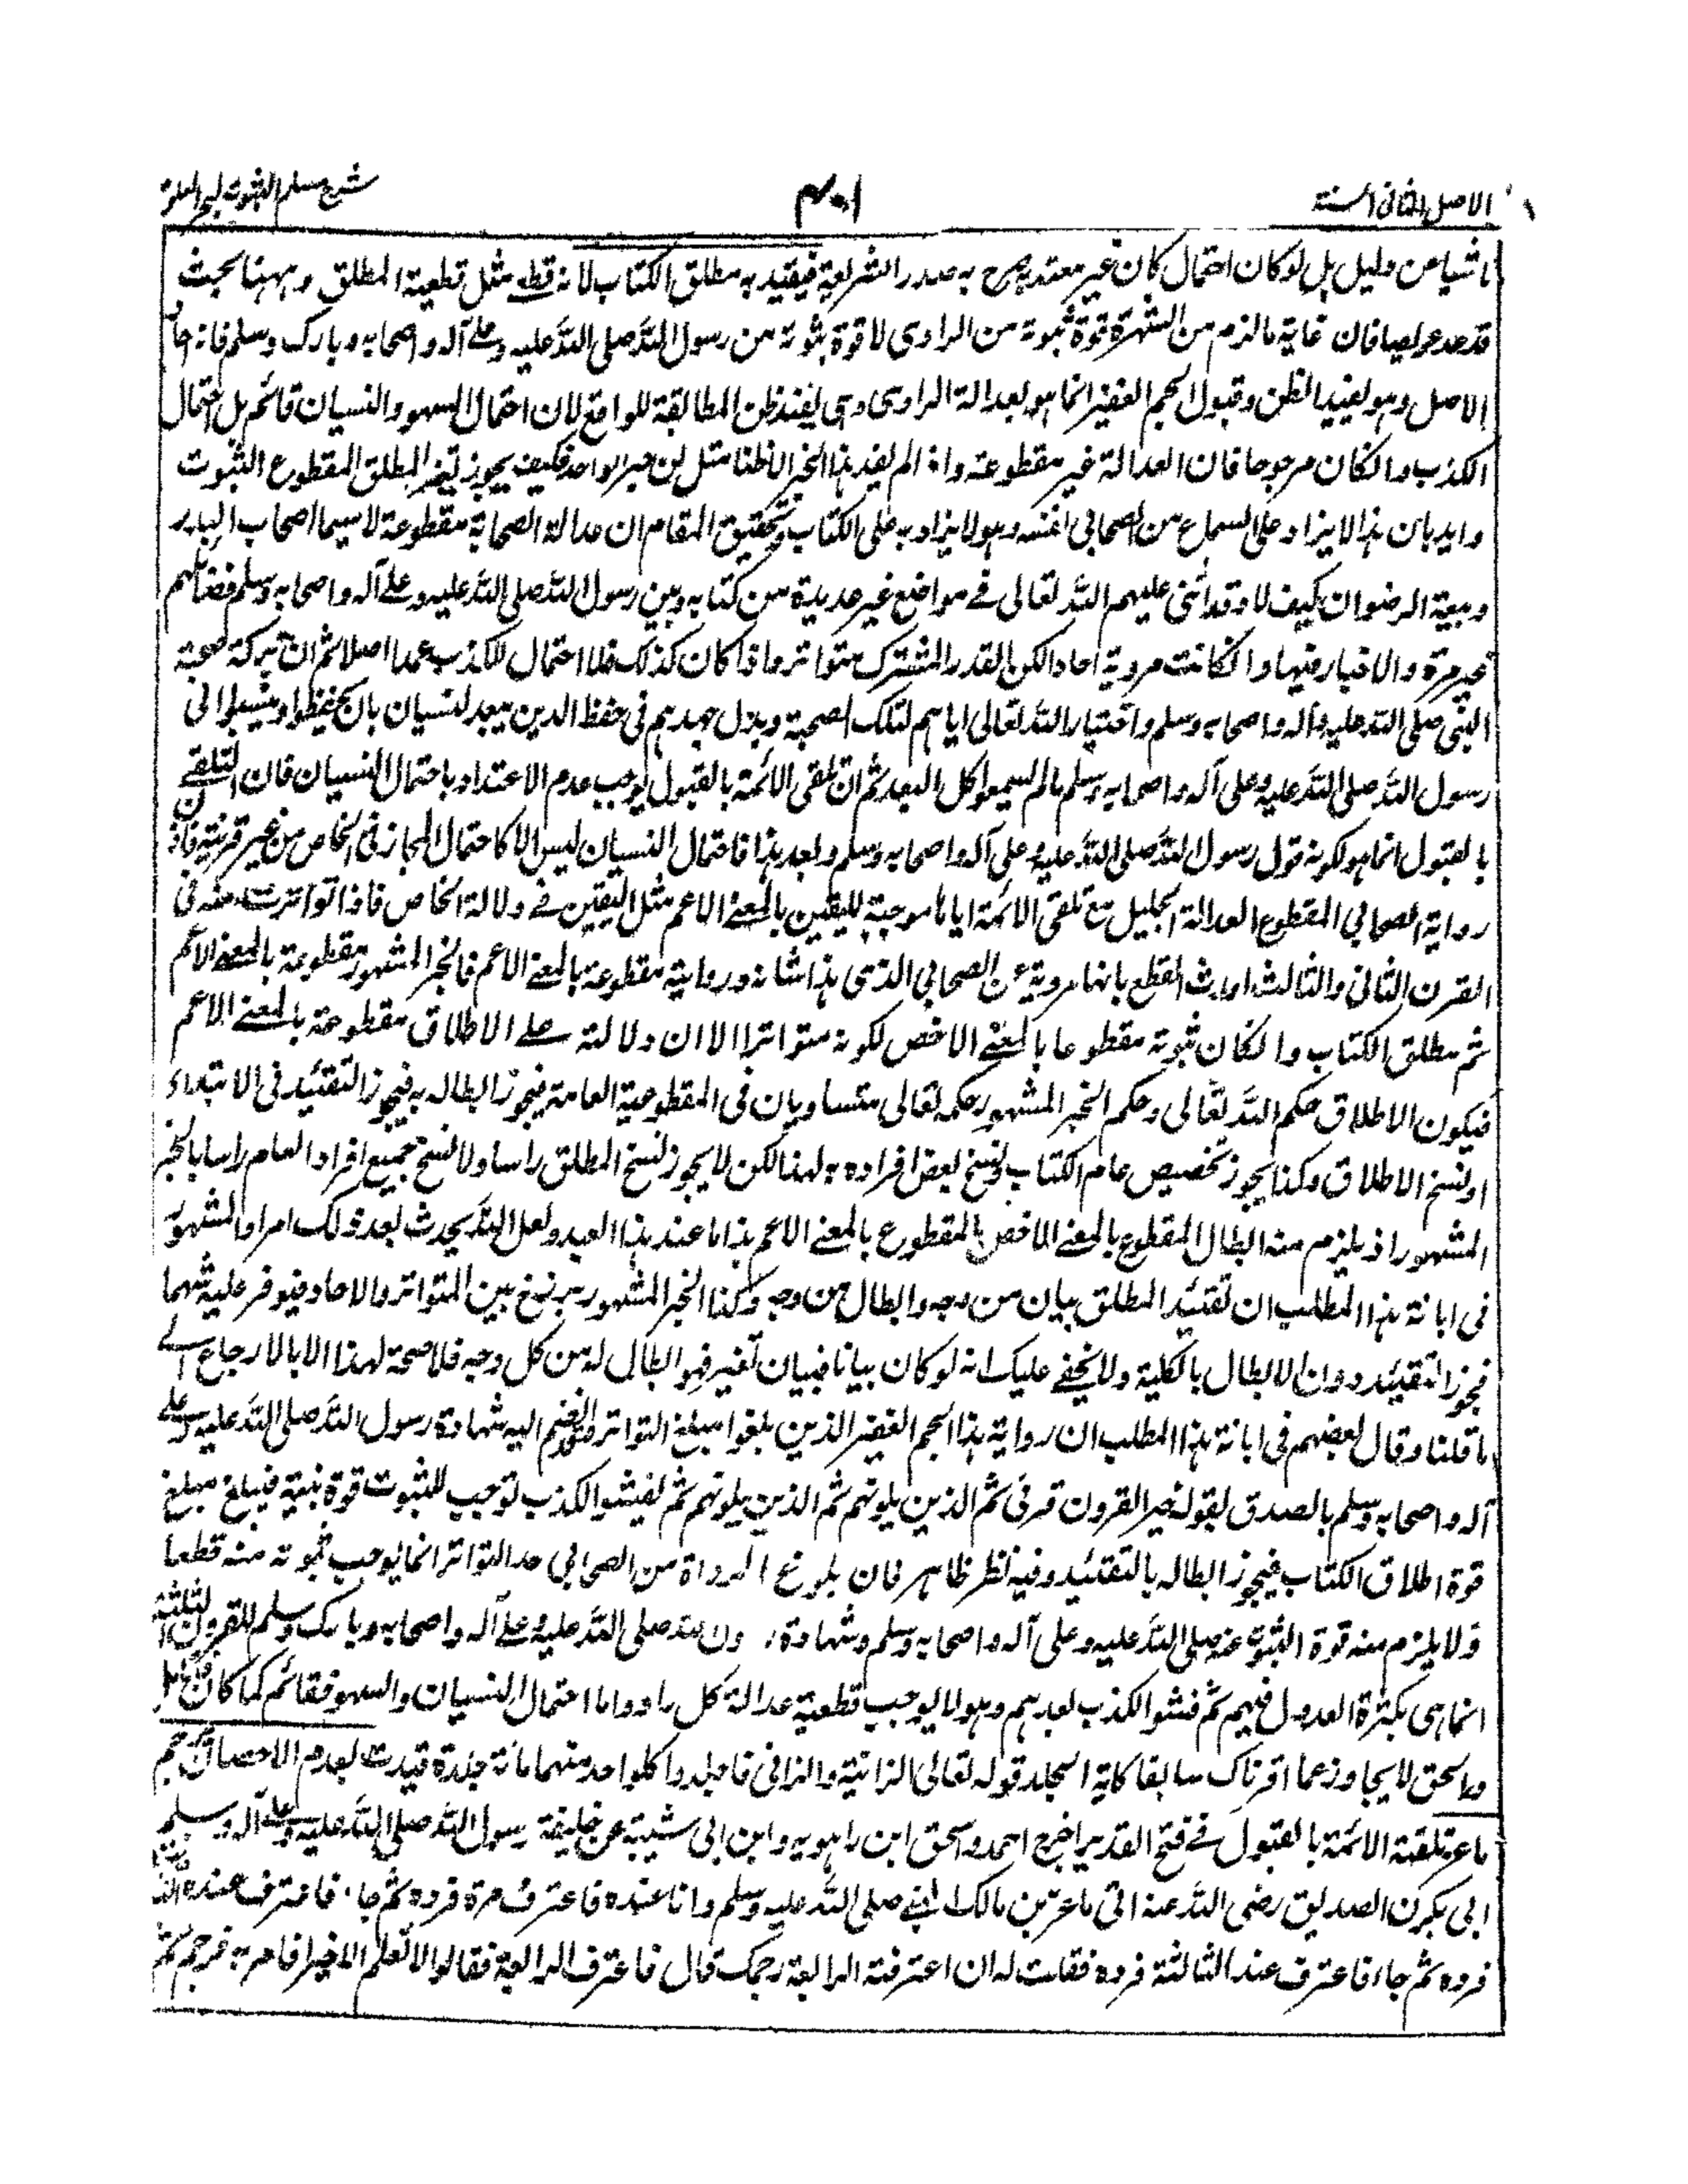 الاصل الثانی السنة
۴۰۱
شرح مسلم الثبوت لبحر العلوم
ناشیا عن دلیل بل لو کان احتمال کان غیر معتد به صرح به صدر الشریعة فیقید به مطلق الکتاب لانه قطعے مثل قطعیة المطلق وههنا بحث
فان غایة ما لزم من الشهرة قوة ثبوته من الراوی لا قوة ثبوته من رسول الله صلی الله علیه وعلے آله واصحابه وبارک وسلم فانه احاد
الاصل وهو یفید الظن وقبول الجم الغفیر انما هو بعدالة الراوی وهی یفید ظن المطابقة للواقع لان احتمال السهو والنسیان قائم بل احتمال
الکذب وانکان مرجوحا فان العدالة غیر مقطوعة واذا لم یفد هذا الخبر الا ظنا مثل خبر الواحد فکیف یجوز تغیر المطلق المقطوع الثبوت
واید بان هذا لا یزاد علی السماع من الصحابی نفسه وهو لا یزاد به علی الکتاب وتحقیق المقام ان عدالة الصحابة مقطوعة لا سیما اصحاب البدر
وبیعة الرضوان کیف لا وقد اثنی علیهم الله تعالی فے مواضع غیر عدیدة من کتابه وبین رسول الله صلی الله علیه وعلے آله واصحابه وسلم فضائلهم
غیر مرة والاخبار فیها وانکانت مرویة احادا لکن القدر المشترک متواتر واذا کان کذلک فلا احتمال للکذب عمدا اصلا ثم ان برکة صحبة
النبی صلی الله علیه وآله واصحابه وسلم واختیار الله تعالی ایاهم لتلک الصحبة وبذل جهدهم فی حفظ الدین یبعد النسیان بان یحفظوا وینسبوا الی
رسول الله صلی الله علیه وعلی آله واصحابه وسلم ما لم یسمعوا کل البعد ثم ان تلقی الائمة بالقبول یوجب عدم الاعتداد باحتمال النسیان فان التلقے
بالقبول انما هو لکونه قول رسول الله صلی الله علیه وعلی آله واصحابه وسلم وبعد هذا فاحتمال النسیان لیس الا کاحتمال المجاز فی الخاص من غیر قرینة فاذن
روایة الصحابی المقطوع العدالة الجلیل مع تلقی الائمة ایاها موجبة للیقین بالمعنے الاعم مثل الیقین فے دلالة الخاص فاذا تواترت عنه فی
القرن الثانی والثالث اورث القطع بانها مرویة عن الصحابی الذی هذا شانه وروایته مقطوعة بالمعنے الاعم فالخبر المشهور مقطوعة بالمعنے الاعم
ثم مطلق الکتاب وانکان ثبوته مقطوعا بالمعنے الاخص لکونه متواترا الا ان دلالته علے الاطلاق مقطوعة بالمعنے الاعم
فیکون الاطلاق حکم الله تعالی وحکم الخبر المشهور حکمه تعالی متساویان فی المقطوعیة العامة فیجوز ابطاله به فیجوز التقیید فی الابتداء
او نسخ الاطلاق وکذا یجوز تخصیص عام الکتاب ونسخ بعض افراده به لهذا لکن لا یجوز نسخ المطلق راسا ولا نسخ جمیع افراد العام راسا بالخبر
المشهور اذ یلزم منه ابطال المقطوع بالمعنے الاخص بالمقطوع بالمعنے الاعم هذا ما عند هذا العبد ولعل الله یحدث بعد ذلک امرا والمشهور
فی ابانة هذا المطلب ان تقیید المطلق بیان من وجه وابطال من وجه وکذا الخبر المشهور برزخ بین المتواتر والاحاد فیوفر علیه شبهما
فیجوز التقیید دون الابطال بالکلیة ولا یخفے علیک انه لو کان بیانا فبیان تغیر فهو ابطال له من کل وجه فلا صحة لهذا الا بالارجاع الے
ما قلنا وقال بعضهم فی ابانة هذا المطلب ان روایة هذا الجم الغفیر الذین بلغوا مبلغ التواتر انضم الیه شهادة رسول الله صلی الله علیه وعلے
آله واصحابه وسلم بالصدق لقوله خیر القرون قرنی ثم الذین یلونهم ثم الذین یلونهم ثم یفشو الکذب توجب للثبوت قوة فیبلغ مبلغ
قوة اطلاق الکتاب فیجوز ابطاله بالتقیید وفیه نظر ظاهر فان بلوغ الرواة من الصحابی حد التواتر انما یوجب ثبوته منه قطعا
ولا یلزم منه قوة الثبوت عنه صلی الله علیه وعلی آله واصحابه وسلم وشهادة صلی الله علیه وعلے آله واصحابه وبارک وسلم للقرون الثلثة
انما هی بکثرة العدول فیهم ثم فشو الکذب بعدهم وهو لا یوجب قطعیة عدالة کل راو واما احتمال النسیان والسهو فقائم کما کان
والحق لا یجاوز عما اقرناک سابقا کایة الجلد قوله تعالی الزانیة والزانی فاجلدوا کل واحد منهما مائة جلدة قیدت بعدم الاحصان برجم
ماعز تلقته الائمة بالقبول فے فتح القدیر اخرج احمد واسحق ابن راهویه وابن ابی شیبة عن خلیفة رسول الله صلی الله علیه وعلے آله وسلم
ابی بکرن الصدیق رضی الله عنه اتی ماعز بن مالک النبے صلی الله علیه وسلم وانا عنده فاعترف مرة فرده ثم جاء فاعترف عنده الثانیة
فرده ثم جاء فاعترف عند الثالثة فرده فقلت له ان اعترفت الرابعة رجمک قال فاعترف الرابعة فقالوا لا نعلم الا خیرا فامر به فرجم ثم